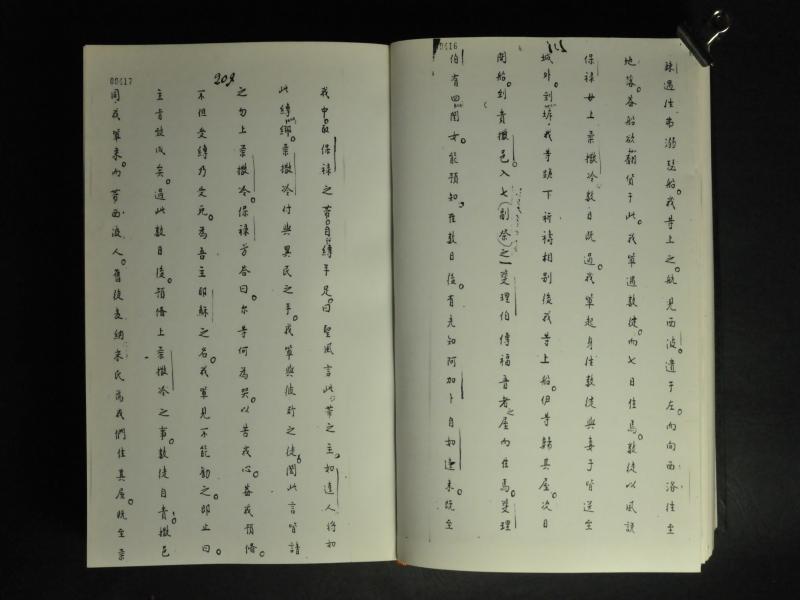 00416
遇往韦溺瑟船。我等上之航見西波遺于左。而向西洛往至
地落。盖船欲翻貨于此。我輩遇數徒。而七日住焉。數徒以風謨
保禄毋上柔撒冷數日既過。我輩起身往數徒與妻子皆送至
城外。到我等跪下祈禱相别後我等上船。伊等歸其屋。次日
開船。到責撒邑。入七副祭之一斐理伯傳福音者之屋而住焉。斐理
伯有四閨女。能預知。在數日後。有先知阿加卜自如達来。既至
00417
208
我中。取保禄之帶。自縛手足。曰聖風言此帶之主。如達人将如
此縛綁。柔撒冷付與異民之手。我輩與彼所之徒。聞此言皆請
之勿上柔撒冷。保禄方答曰。尔等何為哭。以苦我心。盖我預備。
不但受縛乃受死。為吾主耶穌之名。我輩見不能勸之。即止曰
主旨致成矣。過此數日後。預備上柔撒冷之事。數徒自責撒邑。
同我輩来。而帶西波人。舊徒麦納宋氏為我們住其屋。既至柔